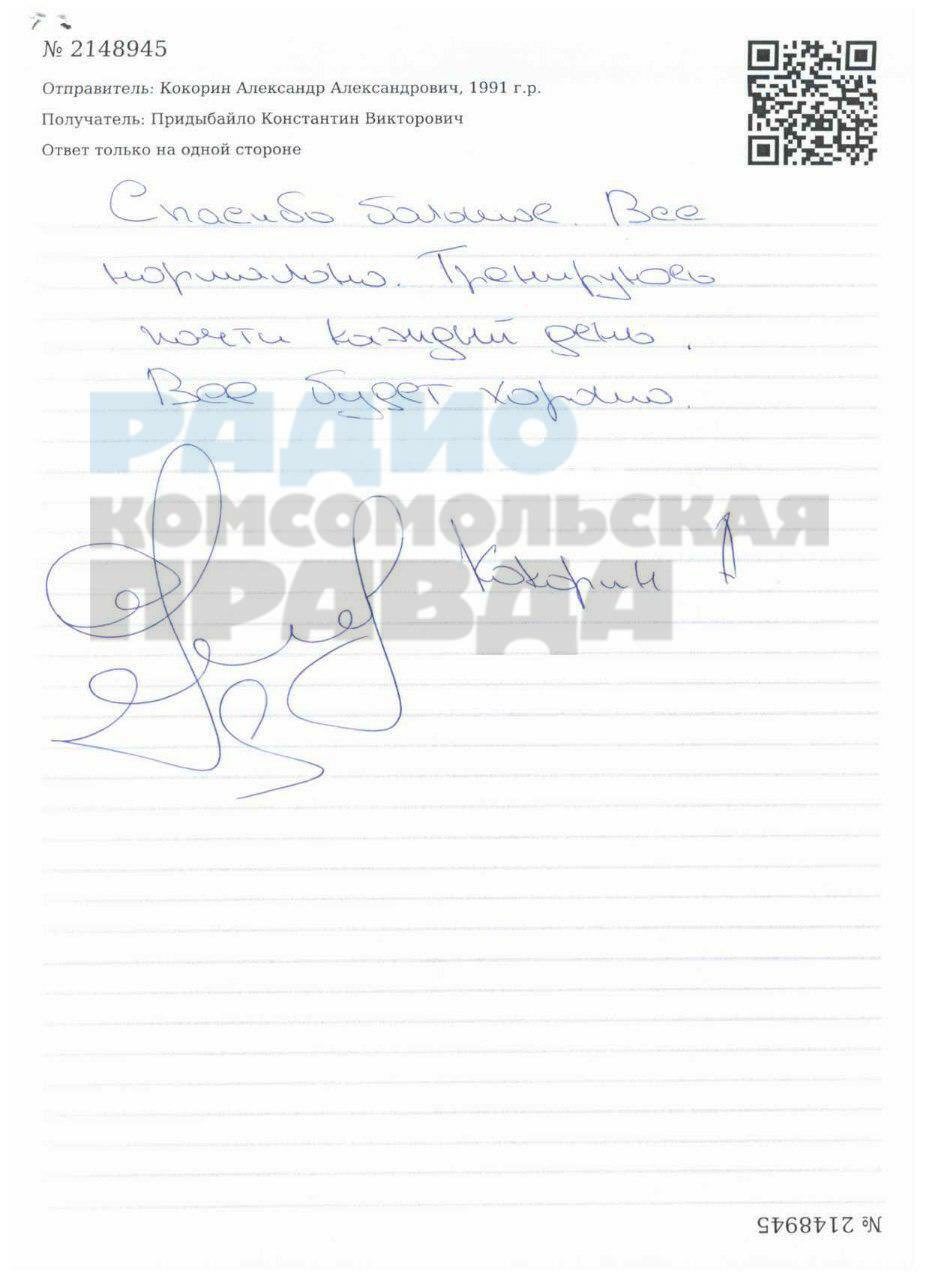 № 2148945
Отправитель: Кокорин Александр Александрович, 1991 г.р.
Получатель: Придыбайло Константин Викторович
Ответ только на одной стороне
Спасибо большое. Все
нормально. Тренируюсь
почти каждый день.
Все будет хорошо.
РАДИО
КОМСОМОЛЬСКАЯ
ПРАВДА
Кокорин А
№ 2148945